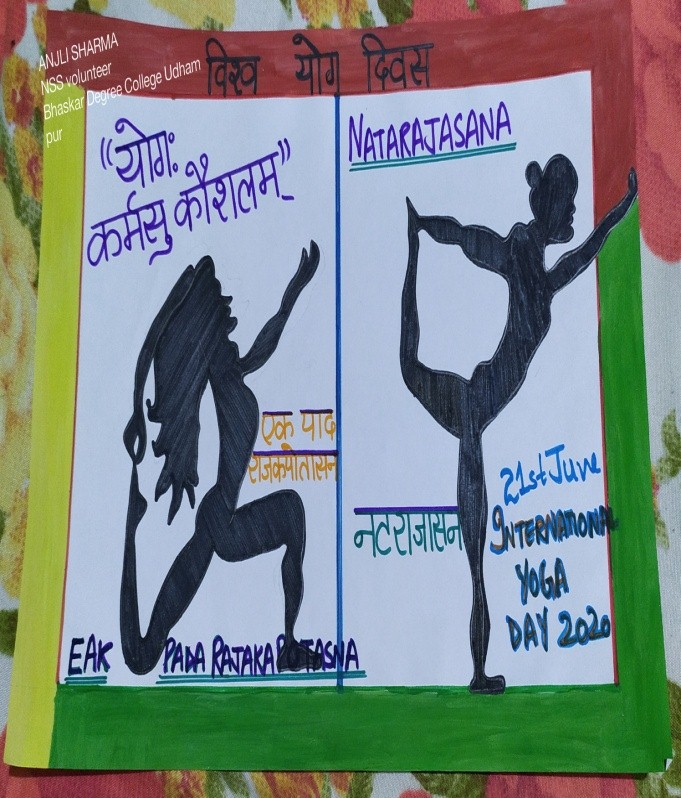 ANJLI SHARMA
NSS volunteer
Bhaskar Degree College Udham
pur
विश्व योग दिवस
"योगः
कर्मसु कौशलम्"
एक पाद
राजकपोतासन
EAK PADA RAJAKAPOTASNA
NATARAJASANA
नटराजासन
21st June
INTERNATIONAL
YOGA
DAY 2020